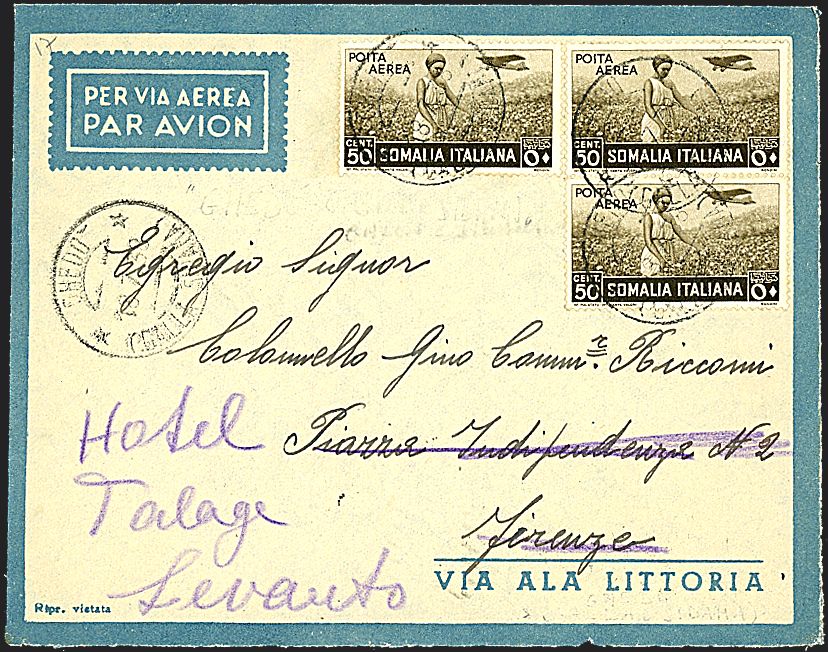 17
PER VIA AEREA
PAR AVION
POSTA
AEREA
CENT.
50
SOMALIA ITALIANA
POSTA
AEREA
CENT.
50
SOMALIA ITALIANA
POSTA
AEREA
CENT.
50
SOMALIA ITALIANA
Egregio Signor
Colonnello Gino Comm.r Ricconi
Piazza Indipendenza N 2
Firenze
Hotel
Palage
Levanto
VIA ALA LITTORIA
Ripr. vietata